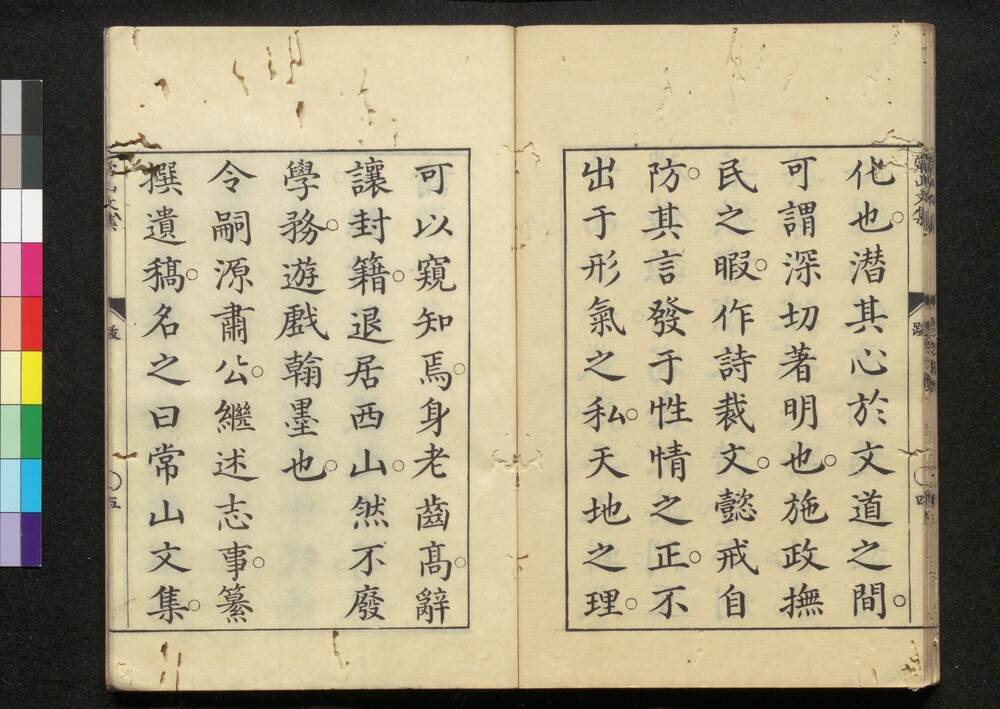 化也。潜其心於文道之間。
可謂深切著明也。施政撫
民之暇。作詩裁文。懿戒自
防。其言發于性情之正。不
出于形氣之私。天地之理。
可以窺知焉。身老齒髙。辭
讓封籍。退居西山。然不廢
學務。遊戲翰墨也。
令嗣源肅公。繼述志事。纂
撰遺稿。名之曰常山文集。
常山文集
跋
四
常山文集
跋
五